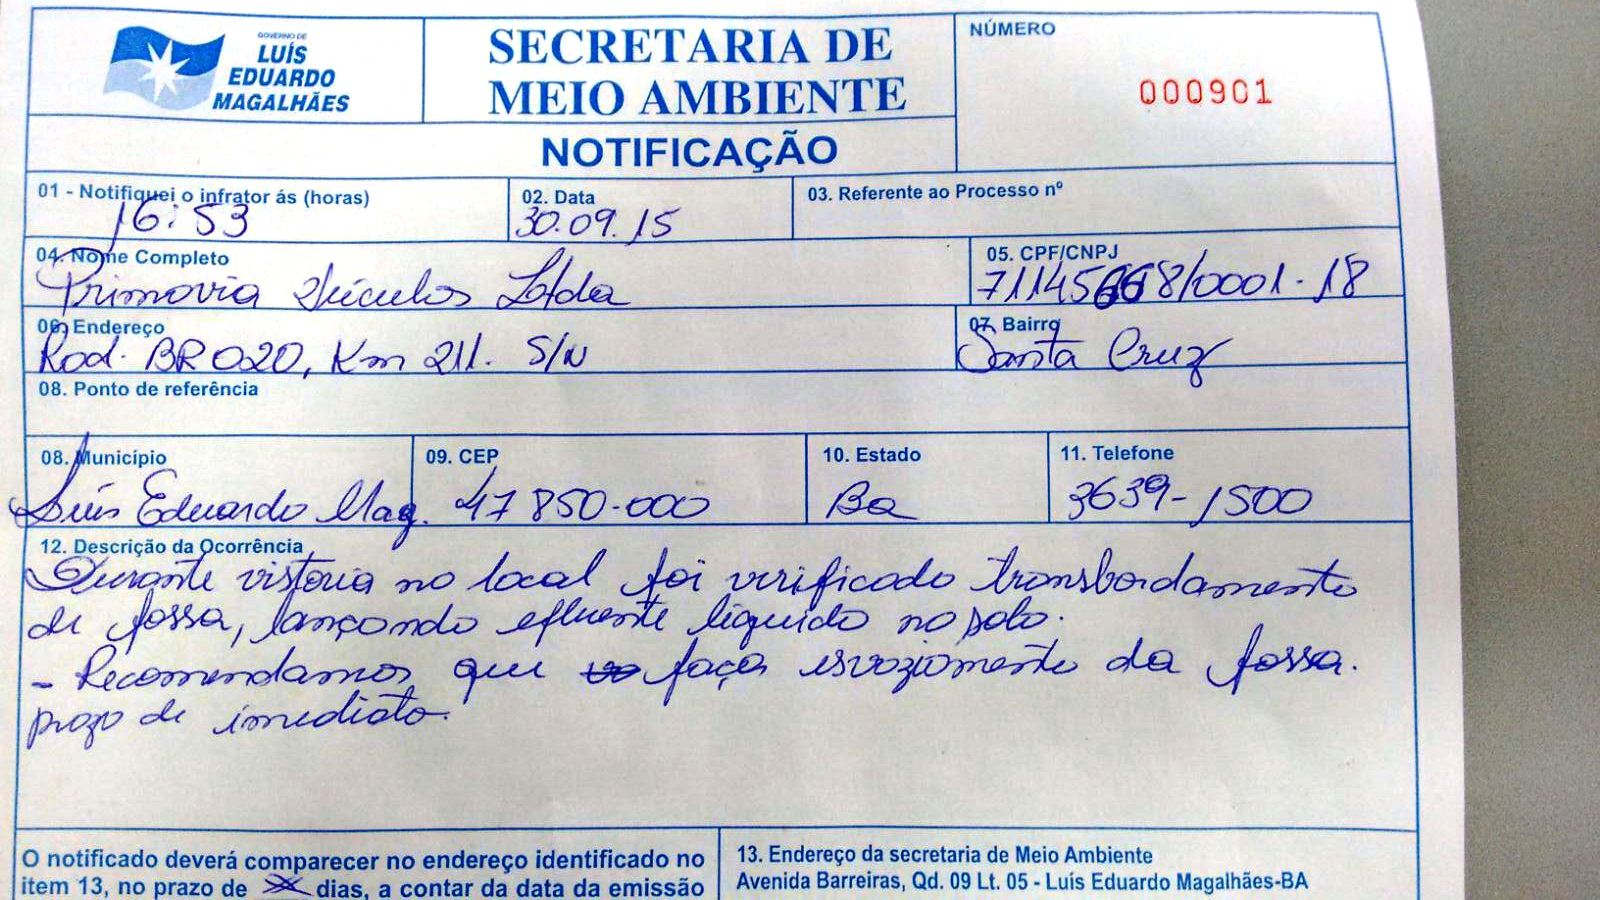 GOVERNO DE
LUÍS
EDUARDO
MAGALHÃES
SECRETARIA DE
MEIO AMBIENTE
NOTIFICAÇÃO
NÚMERO
000901
01 - Notifiquei o infrator ás (horas)
16:53
02. Data
30.09.15
03. Referente ao Processo nº
04. Nome Completo
Primavia Veículos Ltda
05. CPF/CNPJ
71145668/0001-18
06. Endereço
Rod. BR 020, Km 211. S/N
07. Bairro
Santa Cruz
08. Ponto de referência
08. Município
Luís Eduardo Mag.
09. CEP
47850-000
10. Estado
Ba
11. Telefone
3639-1500
12. Descrição da Ocorrência
Durante vistoria no local foi verificado transbordamento
de fossa, lançando efluente líquido no solo.
- Recomendamos que faça esvaziamento da fossa.
prazo de imediato.
O notificado deverá comparecer no endereço identificado no
item 13, no prazo de dias, a contar da data da emissão
13. Endereço da secretaria de Meio Ambiente
Avenida Barreiras, Qd. 09 Lt. 05 - Luís Eduardo Magalhães-BA